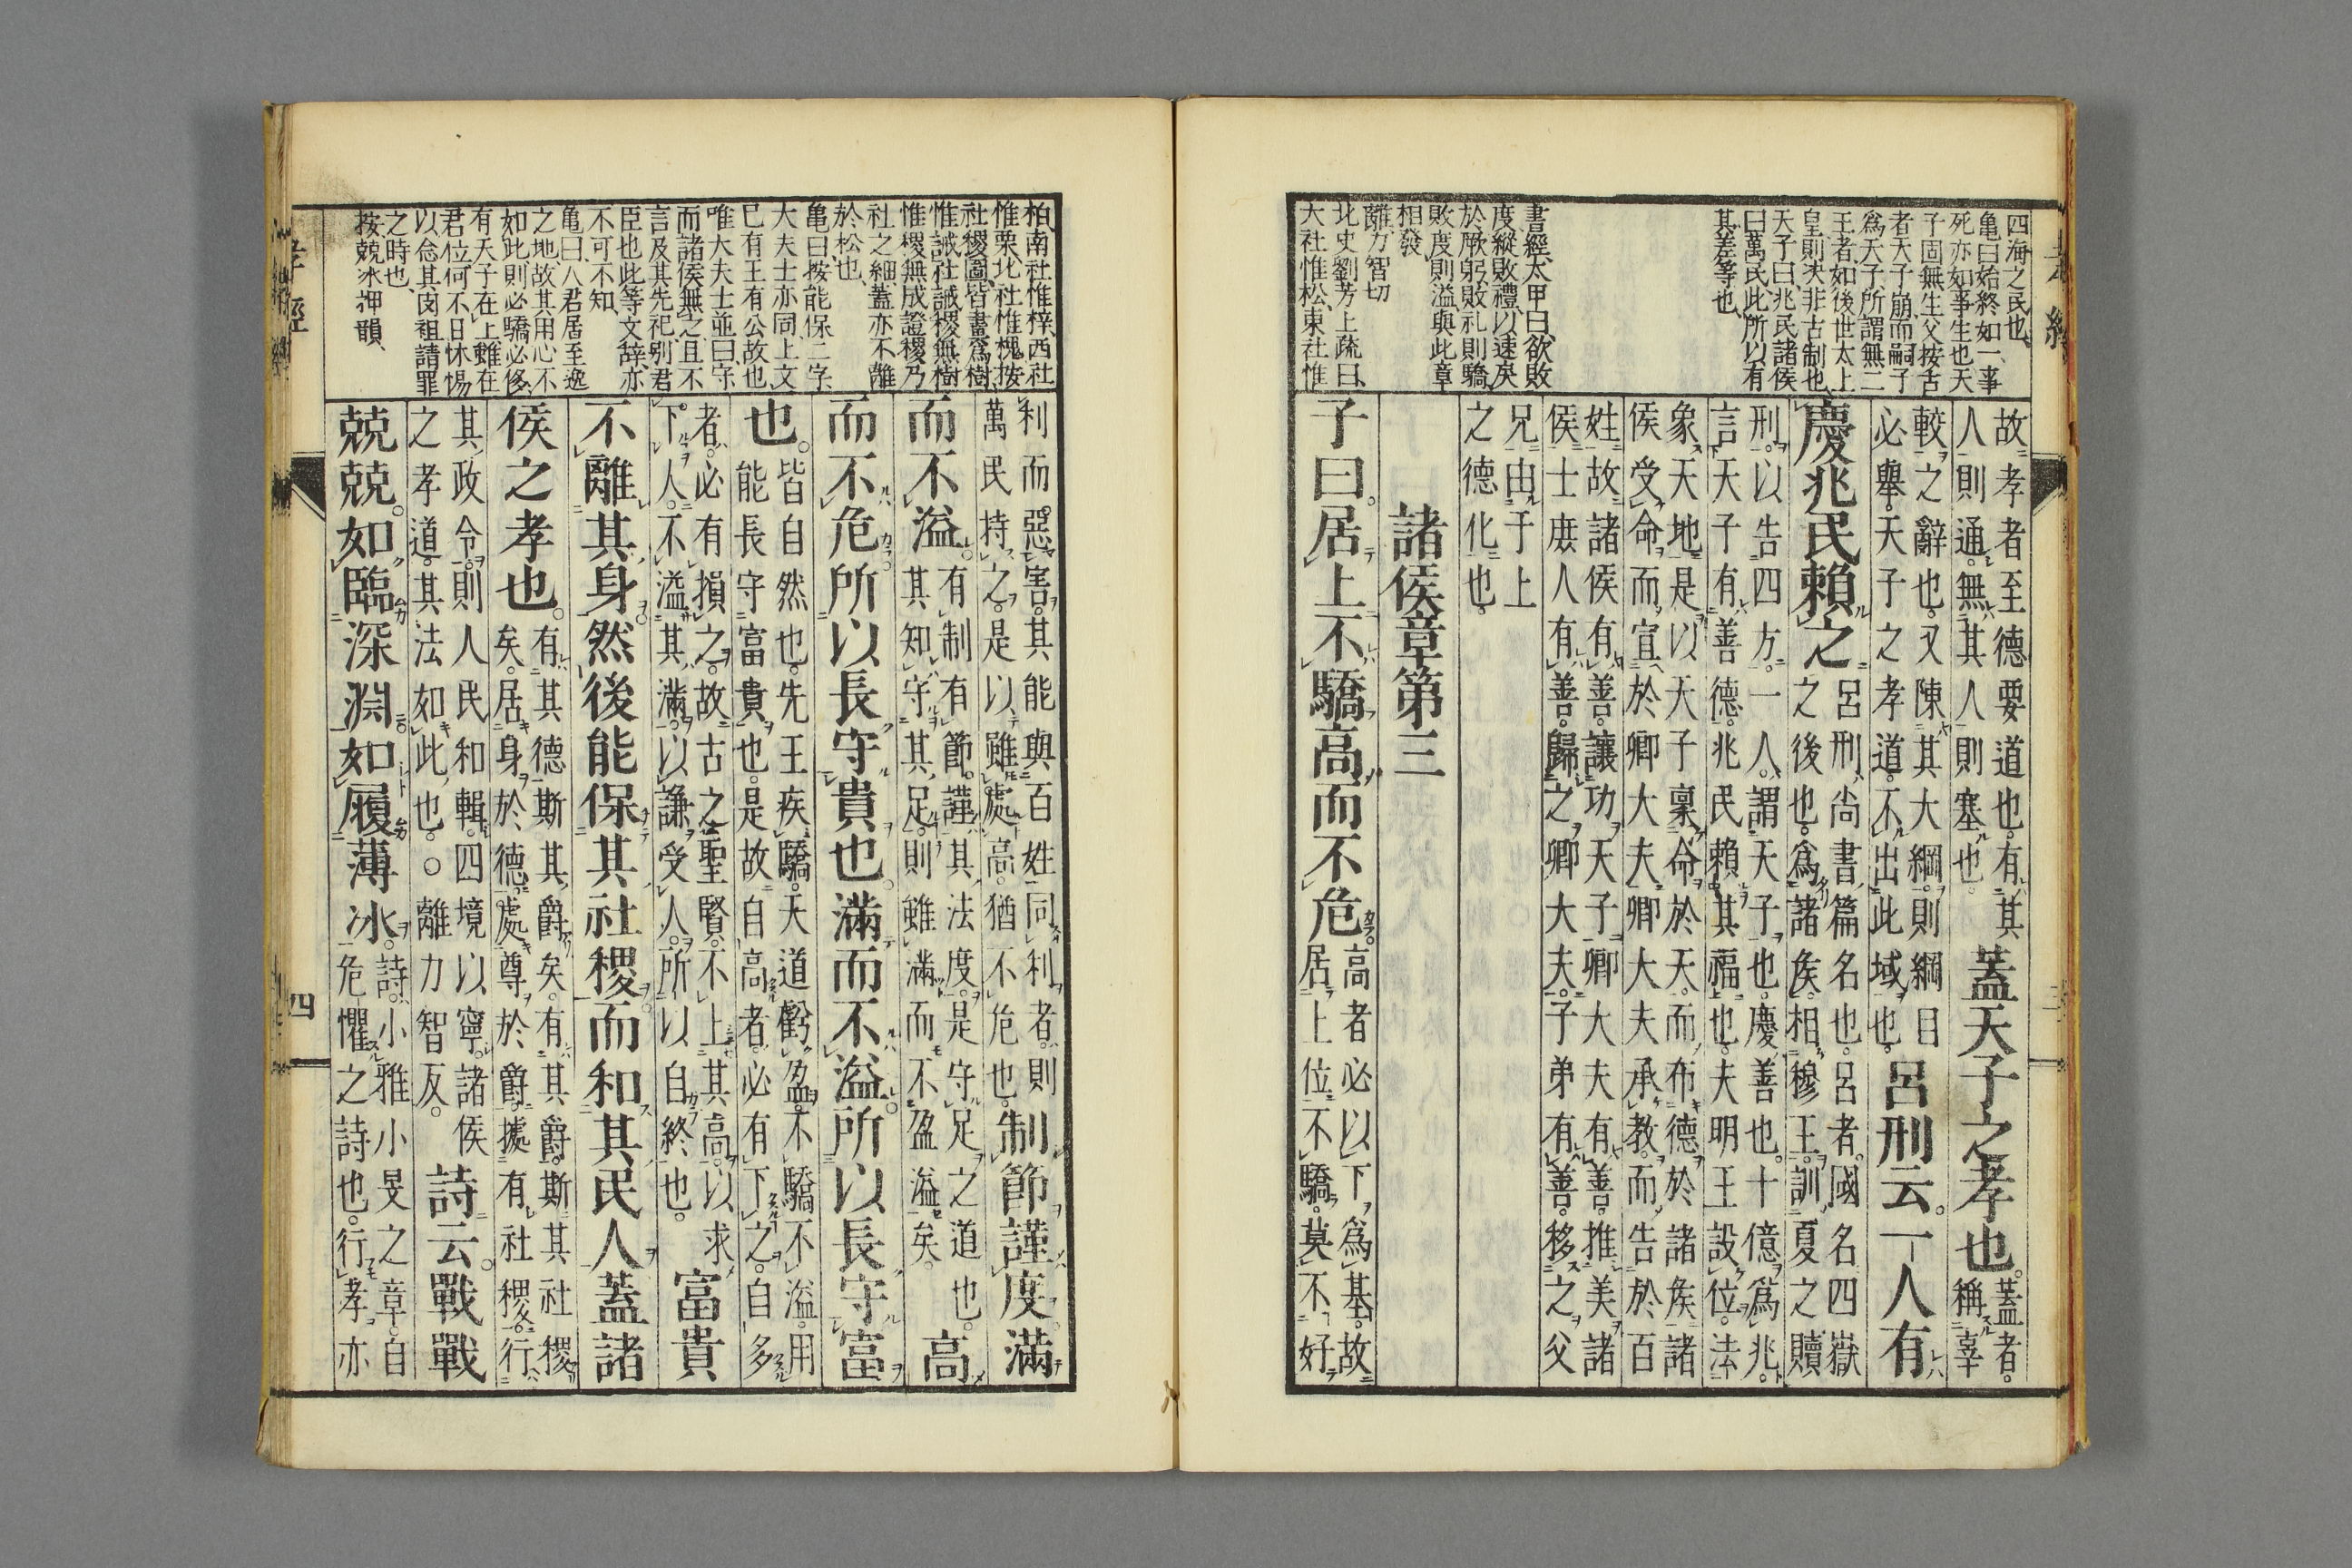 四海之民也、
亀曰始終如一、事
死亦如事生也、天
子固無生父、按古
者天子崩而嗣子
爲天子、所謂無二
王者、如後世太上
皇則決非古制也、
天子曰兆民、諸侯
曰萬民、此所以有
其差等也、
書經太甲曰、欲敗
度、縱敗禮、以速戾
於厥躬、敗礼則驕、
敗度則溢、與此章
相發、
離力智切
北史劉芳上疏曰、
大社惟松、東社惟
故孝者至德要道也。有其
人則通。無其人則塞也。
蓋天子之孝也。
蓋者。
稱辜
較之辭也。又陳其大綱。則綱目
必舉。天子之孝道。不出此域也。
呂刑云。一人有
慶兆民賴之
呂刑、尚書篇名也。呂者。國名四嶽
之後也。爲諸矦。相穆王。訓夏之贖
刑。以告四方。一人、謂天子也。慶、善也。十億爲兆。
言天子有善德。兆民賴其福也。夫明王設位。法
象天地。是以天子稟命於天。而布德於諸矦。諸
侯受命而宣於卿大夫。卿大夫承教。而告於百
姓。故諸侯有善。讓功天子。卿大夫有善。推美諸
侯。士庶人有善。歸之卿大夫。子弟有善。移之父
兄。由于上
之德化也。
諸侯章第三
子曰。居上不驕高而不危
高者必以下爲基。故
居上位不驕。莫不好
柏、南社惟梓、西社
惟栗、北社惟槐、按
社稷圖、皆畫爲樹、
惟誡社誡稷無樹、
惟稷無成證、稷乃
社之細、蓋亦不離
於松也、
亀曰、按能保二字、
大夫士亦同、上文
已有王有公故也、
唯大夫士並曰守、
而諸侯無之、且不
言及其先祀、別君
臣也、此等文辞、亦
不可不知、
亀曰、八君居至逸
之地、故其用心不
如此則必驕必侈、
有天子在上、雖在
君位、何不日怵惕
以念其囱祖請罪
之時也、
按、兢氷押韻、
利而惡害。其能與百姓同利者。則
萬民持之。是以雖處高。猶不危也。
制節謹度。滿
而不溢。
有制有節。謹其法度。是守足之道也。
其知守其足。則雖滿而不盈溢矣。
高
而不危。所以長守貴也。滿而不溢。所以長守富
也。
皆自然也。先王疾驕。天道虧盈。不驕不溢。用
能長守富貴也。是故自高者。必有下之。自多
者。必有損之。故古之聖賢。不上其高。以求
下人。不溢其滿。以謙受人。所以自終也。
富貴
不離其身。然後能保其社稷。而和其民人蓋諸
侯之孝也。
有其德斯其爵矣。有其爵。斯其社稷
矣。居身於德。處尊於爵。據有社稷。行
其政令。則人民和輯。四境以寧。諸侯
之孝道。其法如此也。○離力智反。
詩云。戰戰
兢兢。如臨深淵。如履薄氷。
詩。小雅小旻之章。自
危懼之詩也。行孝亦
孝經
四